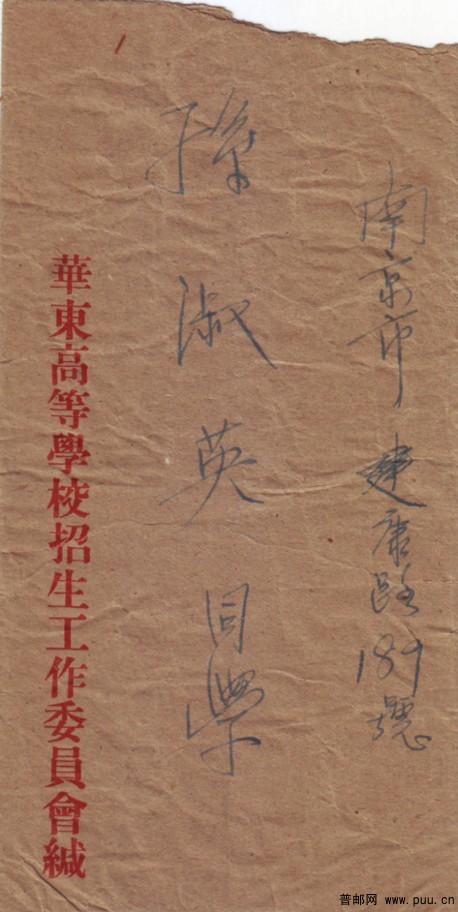 南京市 建康路 189號
孫淑英同學
華東高等學校招生工作委員會緘
普邮网 www.puu.cn